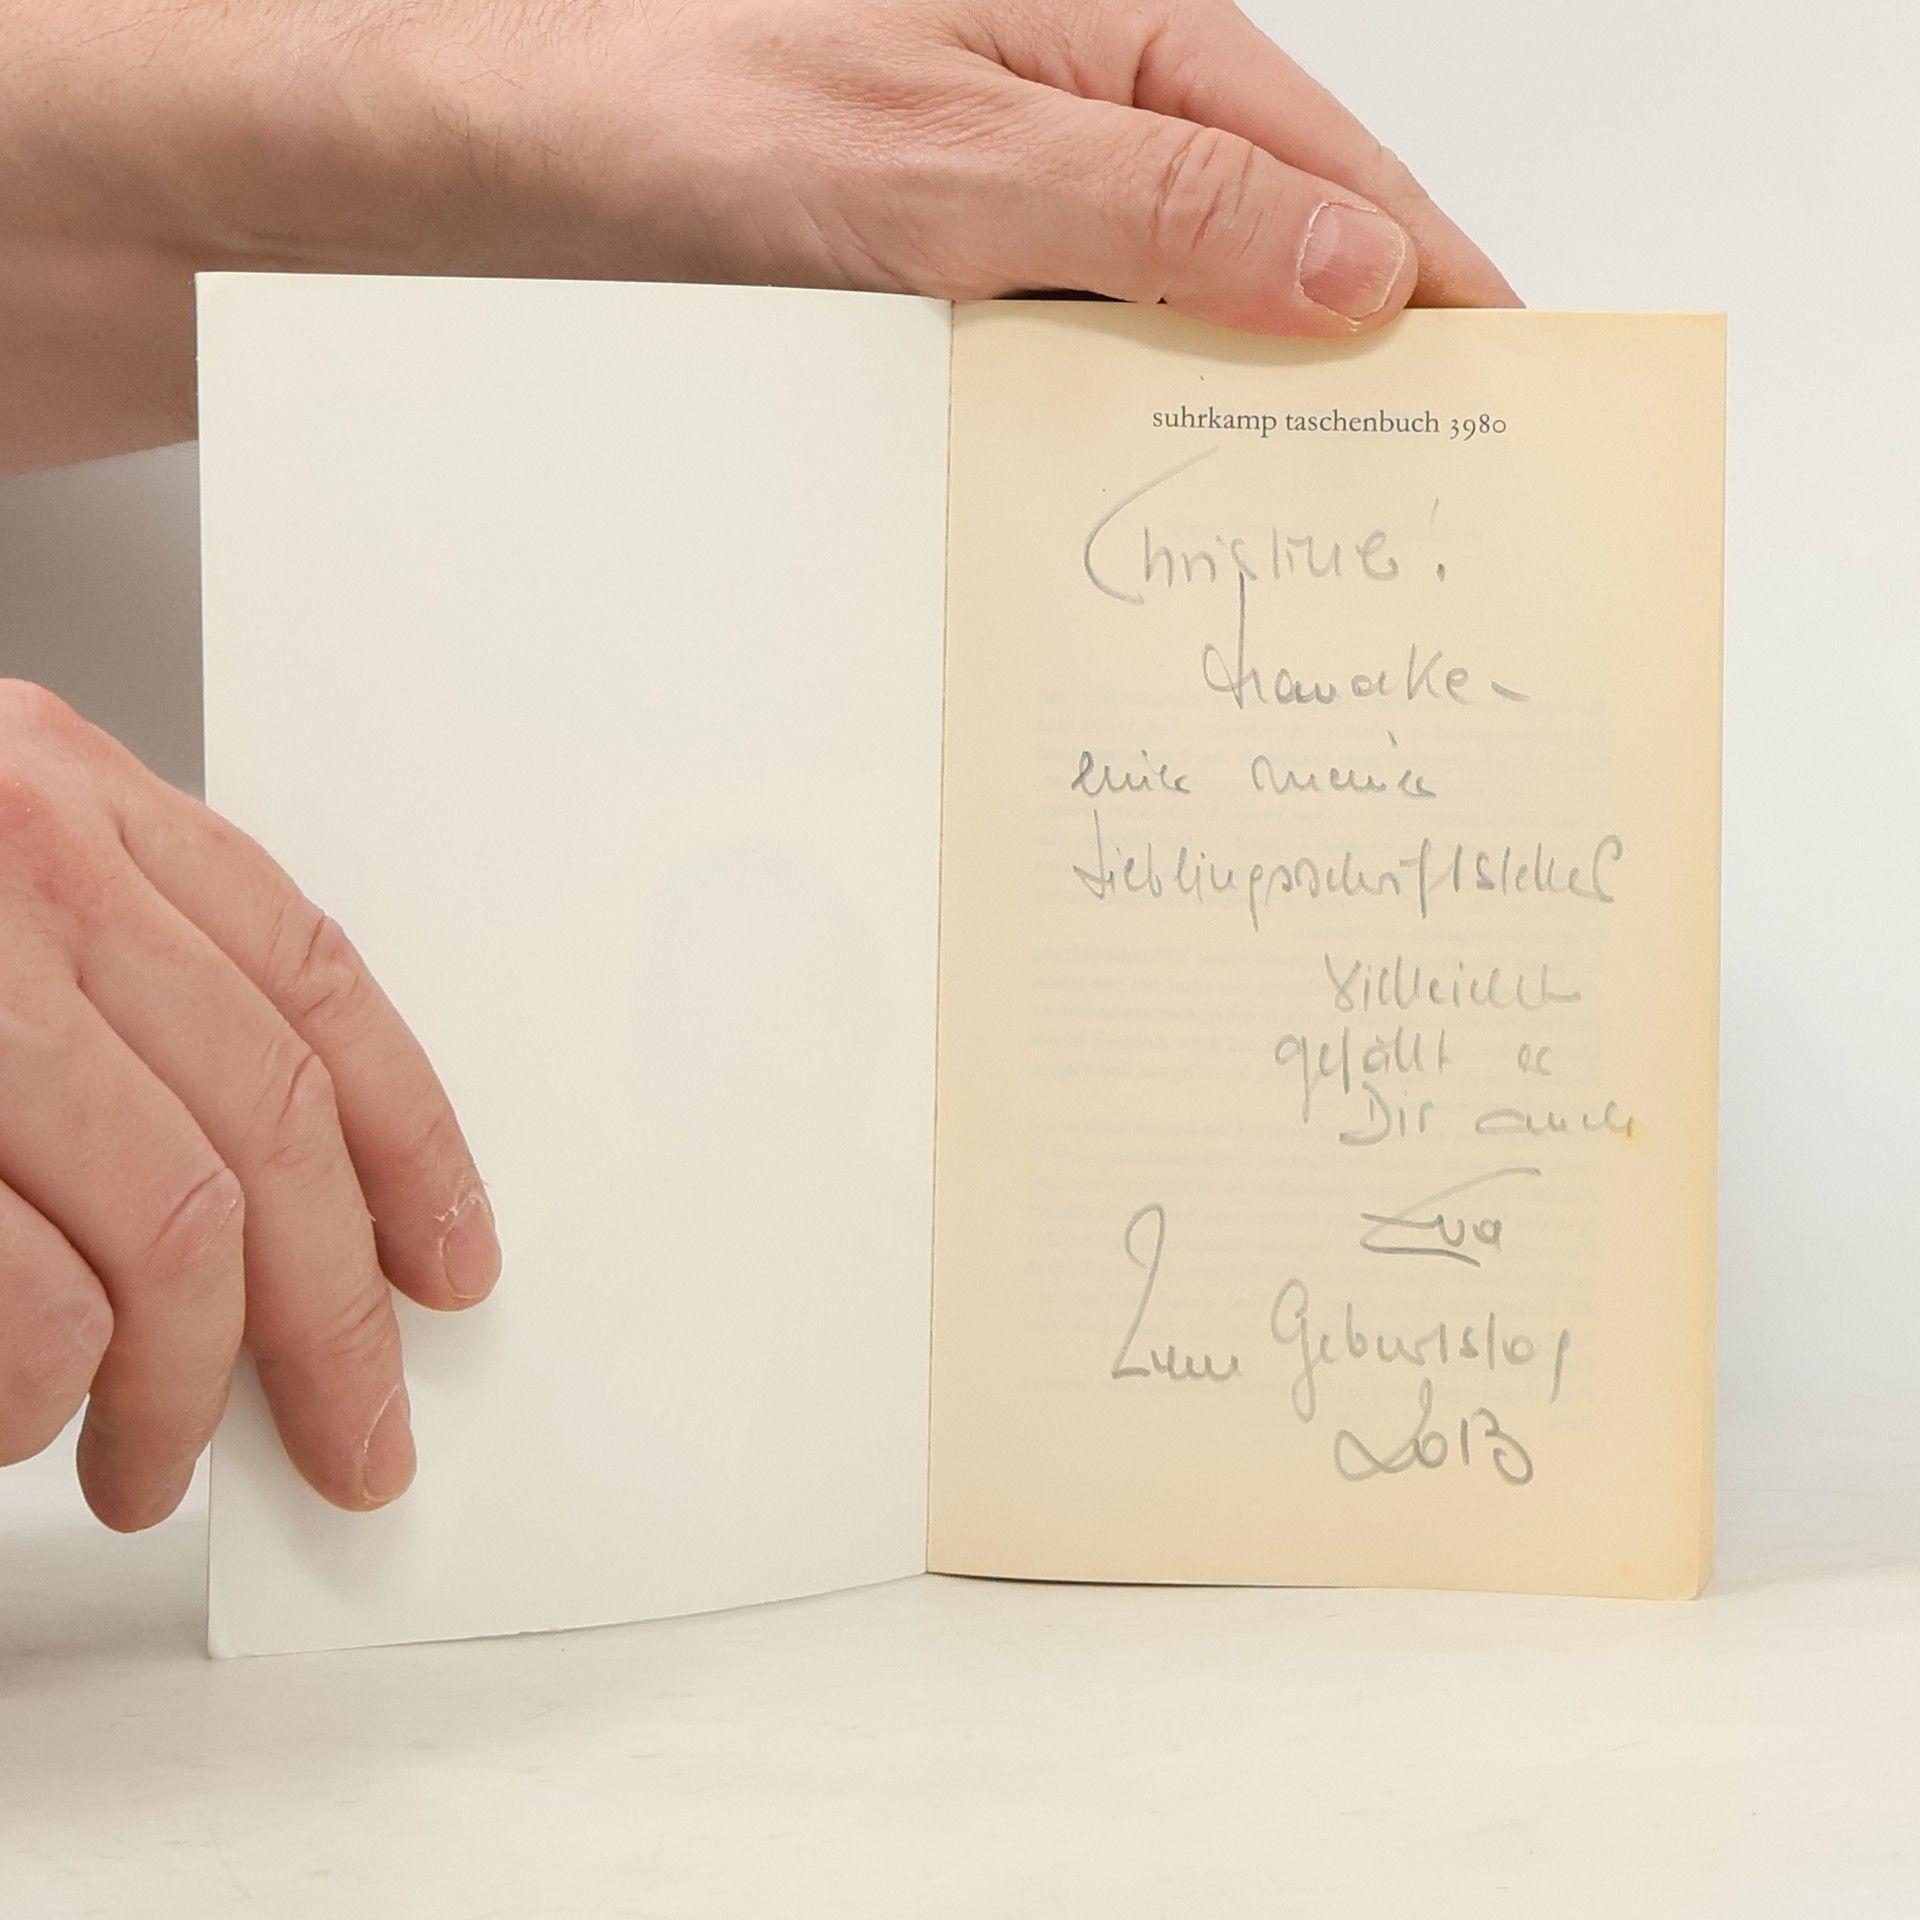 suhrkamp taschenbuch 3980
Christine!
einer meiner
Lieblingsschriftsteller
Vielleicht
gefällt es
Dir auch
Eva
Zum Geburtstag
2013